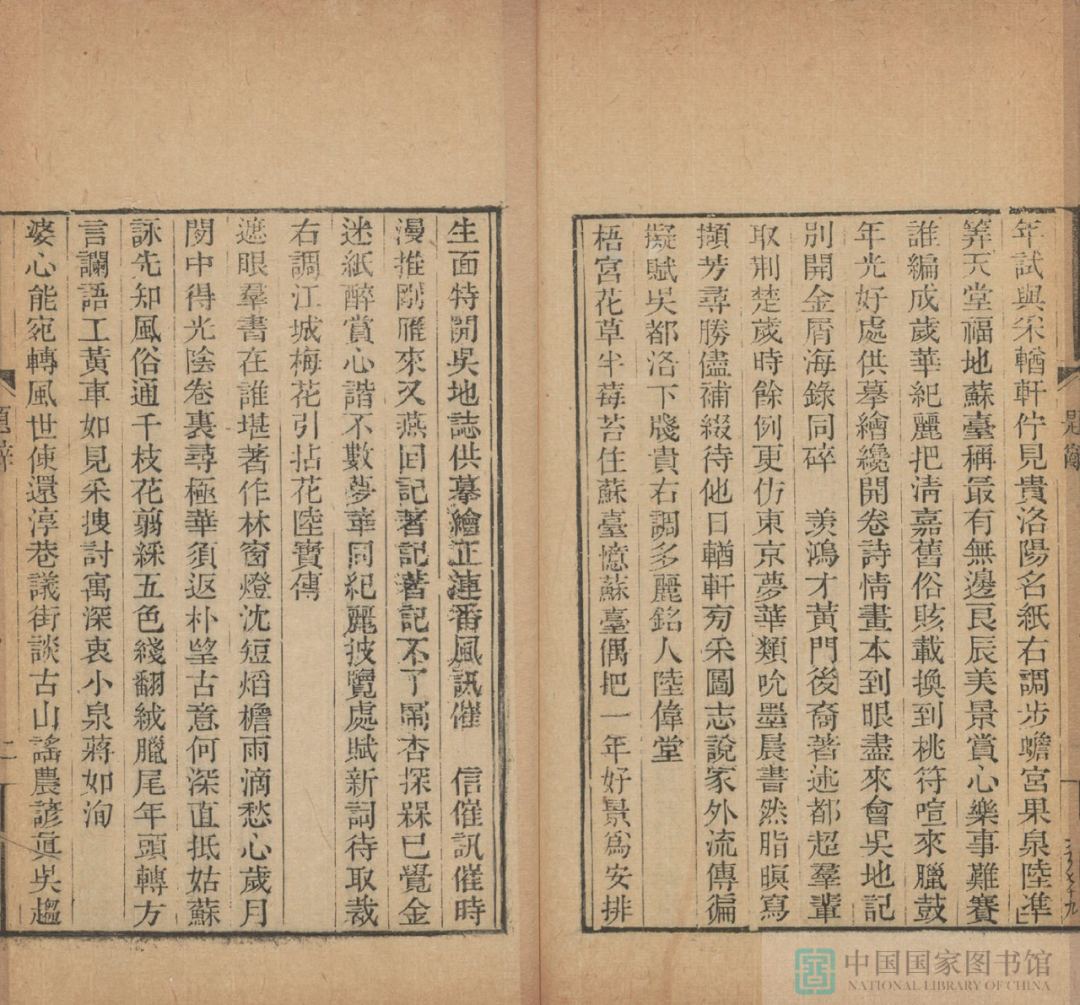 年試與采輶軒佇見貴洛陽名紙右調步蟾宮果泉陸準
筭天堂福地蘇臺稱最有無邊良辰美景賞心樂事難賽
誰編成歲華紀麗把淸嘉舊俗賅載換到桃符喧來臘鼓
年光好處供摹繪纔開卷詩情畫本到眼盡來會吳地記
別開金屑海錄同碎　羨鴻才黃門後裔著述都超羣輩
取荆楚歲時餘例更仿東京夢華類吮墨晨書然脂暝寫
擷芳尋勝儘補綴待他日輶軒旁采圖志說家外流傳徧
擬賦吳都洛下牋貴右調多麗銘人陸偉堂
梧宮花草半莓苔住蘇臺憶蘇臺偶把一年好景爲安排
生面特開吳地誌供摹繪正連番風訊催　信催訊催時
漫推剛雁來又燕回記著記著記不了鬧杏探槑已覺金
迷紙醉賞心諧不數夢華同紀麗披覽處賦新詞待取裁
右調江城梅花引拈花陸寶傳
遮眼羣書在誰堪著作林窗燈沈短熖檐雨滴愁心歲月
閑中得光陰卷裏尋極華須返朴望古意何深直抵姑蘇
詠先知風俗通千枝花翦綵五色綫翻絨臘尾年頭轉方
言讕語工黃車如見采搜討寓深衷小泉蔣如洵
婆心能宛轉風世使還淳巷議街談古山謠農諺眞吳趨
題辭
二
中国国家图书馆
NATIONAL LIBRARY OF CHINA